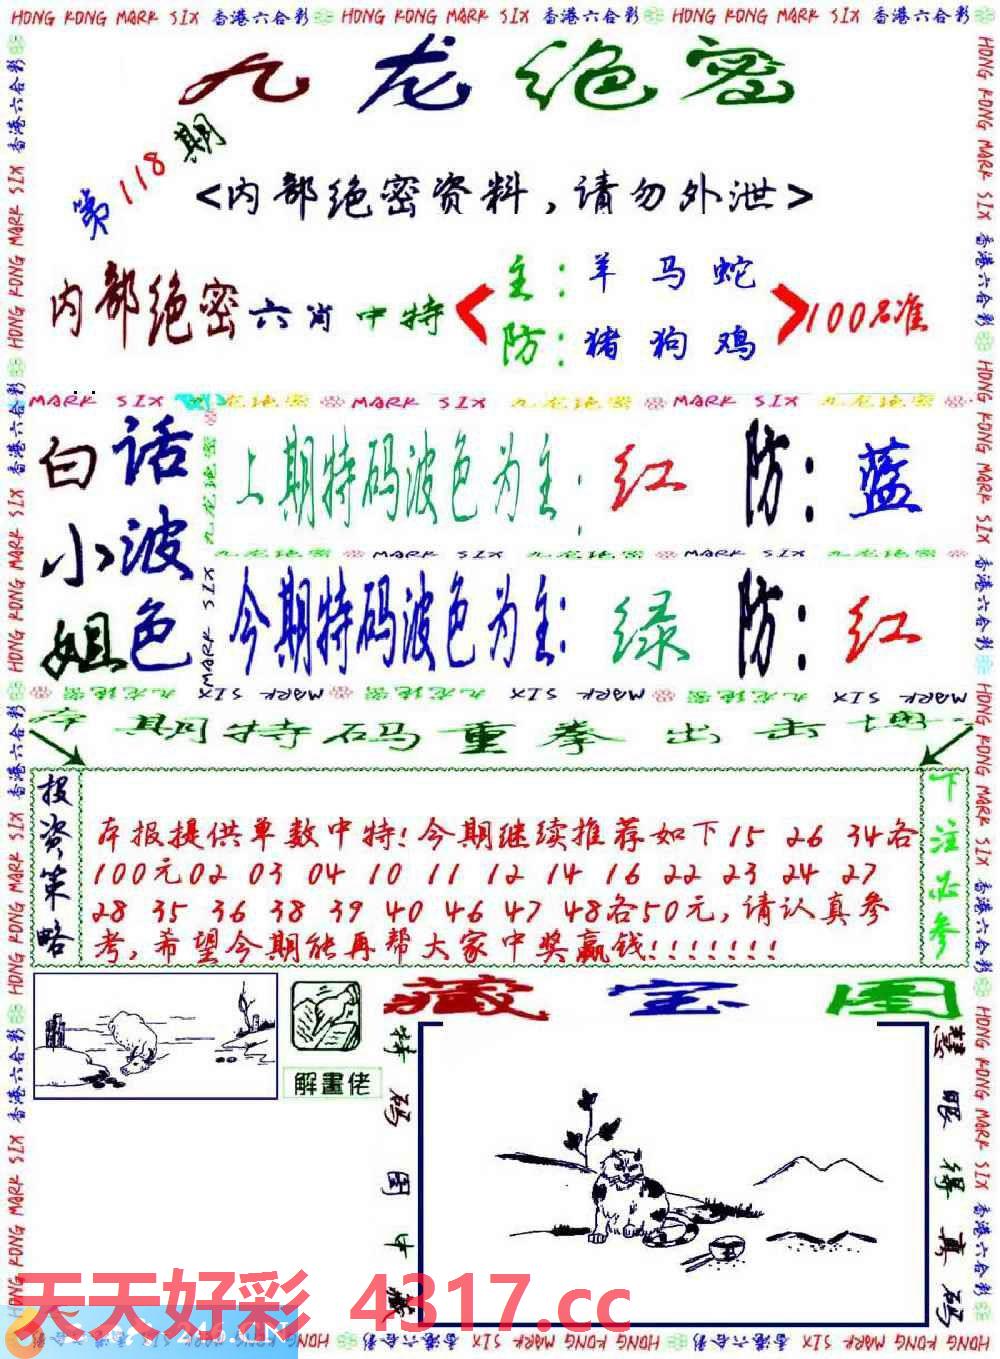 HONG KONG MARK SIX 香港六合彩 HONG KONG MARK SIX 香港六合彩 HONG KONG MARK SIX 香港六合彩
九龙绝密
第118期
<内部绝密资料,请勿外泄>
内部绝密六肖中特
主:羊 马 蛇
防:猪 狗 鸡
100%准
MARK SIX 九龙绝密 MARK SIX 九龙绝密 MARK SIX 九龙绝密
白小姐
话波色
上期特码波色为主:红 防:蓝
九龙绝密 MARK SIX 九龙绝密 MARK SIX 九龙绝密
今期特码波色为主:绿 防:红
本期特码重拳出击
投资策略
本报提供单数中特!今期继续推荐如下15 26 34各
100元02 03 04 10 11 12 14 16 22 23 24 27
28 35 36 38 39 40 46 47 48各50元,请认真参
考,希望今期能再帮大家中奖赢钱!!!!!!!
下注必参
藏宝图
解畫佬
特码图中藏
慧眼得真码
天天好彩 4317.cc